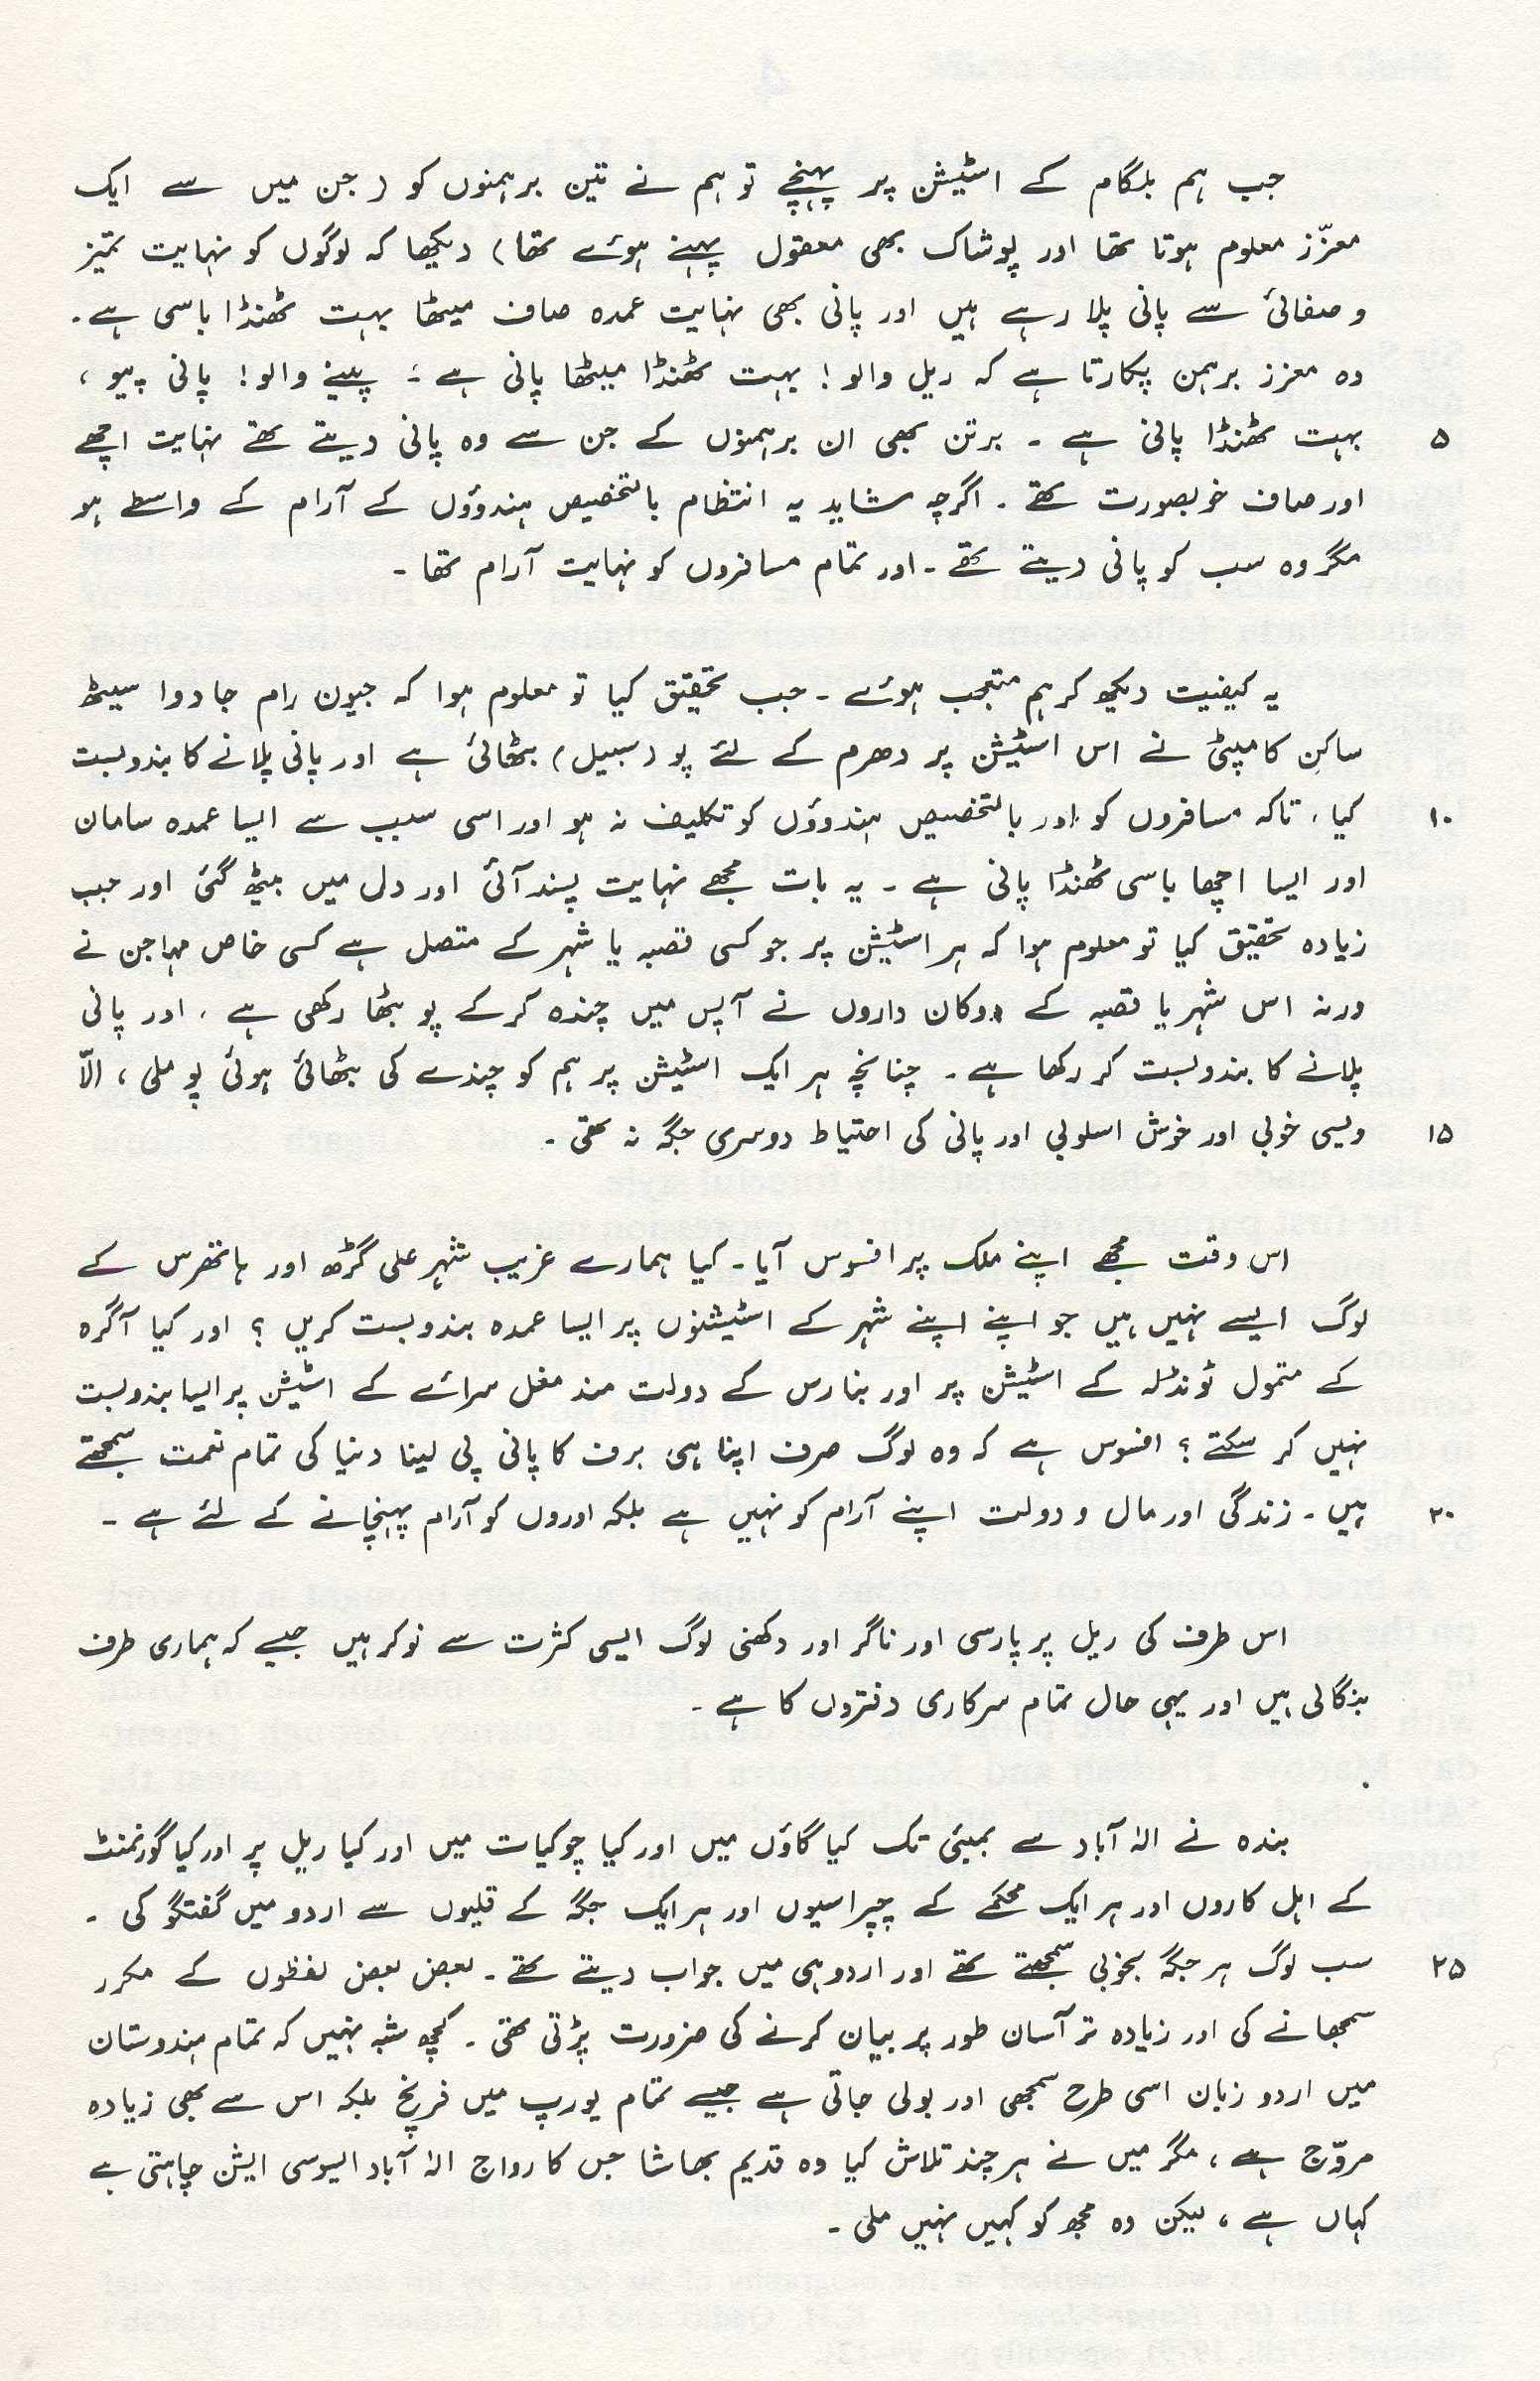 جب ہم بلگام کے اسٹیشن پر پہنچے تو ہم نے تین برہمنوں کو (جن میں سے ایک
معزّز معلوم ہوتا تھا اور پوشاک بھی معقول پہنے ہوئے تھا) دیکھا کہ لوگوں کو نہایت تمیز
و صفائی سے پانی پلا رہے ہیں اور پانی بھی نہایت عمدہ صاف میٹھا بہت ٹھنڈا باسی ہے۔
وہ معزز برہمن پکارتا ہے کہ ریل والو! بہت ٹھنڈا میٹھا پانی ہے؛ پینے والو! پانی پیو،
۵ بہت ٹھنڈا پانی ہے۔ برتن بھی ان برہمنوں کے جن سے وہ پانی دیتے تھے نہایت اچھے
اور صاف خوبصورت تھے۔ اگرچہ شاید یہ انتظام بالتخصیص ہندوؤں کے آرام کے واسطے ہو
مگر وہ سب کو پانی دیتے تھے۔ اور تمام مسافروں کو نہایت آرام تھا۔
یہ کیفیت دیکھ کر ہم متعجب ہوئے۔ جب تحقیق کیا تو معلوم ہوا کہ جیون رام جادوا سیٹھ
ساکن کامپٹی نے اس اسٹیشن پر دھرم کے لئے پو (سبیل) بٹھائی ہے اور پانی پلانے کا بندوبست
۱۰ کیا، تاکہ مسافروں کو اور بالتخصیص ہندوؤں کو تکلیف نہ ہو اور اسی سبب سے ایسا عمدہ سامان
اور ایسا اچھا باسی ٹھنڈا پانی ہے۔ یہ بات مجھے نہایت پسند آئی اور دل میں بیٹھ گئی اور جب
زیادہ تحقیق کیا تو معلوم ہوا کہ ہر اسٹیشن پر جو کسی قصبہ یا شہر کے متصل ہے کسی خاص مہاجن نے
ورنہ اس شہر یا قصبہ کے دوکان داروں نے آپس میں چندہ کرکے پو بٹھا رکھی ہے، اور پانی
پلانے کا بندوبست کر رکھا ہے۔ چنانچہ ہر ایک اسٹیشن پر ہم کو چندے کی بٹھائی ہوئی پو ملی، الّا
۱۵ ویسی خوبی اور خوش اسلوبی اور پانی کی احتیاط دوسری جگہ نہ تھی۔
اس وقت مجھے اپنے ملک پر افسوس آیا۔ کیا ہمارے غریب شہر علی گڑھ اور ہاتھرس کے
لوگ ایسے نہیں ہیں جو اپنے اپنے شہر کے اسٹیشنوں پر ایسا عمدہ بندوبست کریں؟ اور کیا آگرہ
کے متمول ٹونڈلہ کے اسٹیشن پر اور بنارس کے دولت مند مغل سرائے کے اسٹیشن پر ایسا بندوبست
نہیں کر سکتے؟ افسوس ہے کہ وہ لوگ صرف اپنا ہی برف کا پانی پی لینا دنیا کی تمام نعمت سمجھتے
۲۰ ہیں۔ زندگی اور مال و دولت اپنے آرام کو نہیں ہے بلکہ اوروں کو آرام پہنچانے کے لئے ہے۔
اس طرف کی ریل پر پارسی اور ناگر اور دکھنی لوگ ایسی کثرت سے نوکر ہیں جیسے کہ ہماری طرف
بنگالی ہیں اور یہی حال تمام سرکاری دفتروں کا ہے۔
بندہ نے الہٰ آباد سے بمبئی تک کیا گاؤں میں اور کیا چوکیات میں اور کیا ریل پر اور کیا گورنمنٹ
کے اہل کاروں اور ہر ایک محکمے کے چپراسیوں اور ہر ایک جگہ کے قلیوں سے اردو میں گفتگو کی۔
۲۵ سب لوگ ہر جگہ بخوبی سمجھتے تھے اور اردو ہی میں جواب دیتے تھے۔ بعض بعض لفظوں کے مکرر
سمجھانے کی اور زیادہ تر آسان طور پر بیان کرنے کی ضرورت پڑتی تھی۔ کچھ شبہ نہیں کہ تمام ہندوستان
میں اردو زبان اسی طرح سمجھی اور بولی جاتی ہے جیسے تمام یورپ میں فرینچ بلکہ اس سے بھی زیادہ
مروّج ہے، مگر میں نے ہرچند تلاش کیا وہ قدیم بھاشا جس کا رواج الہٰ آباد ایسوسی ایشن چاہتی ہے
کہاں ہے، لیکن وہ مجھ کو کہیں نہیں ملی۔